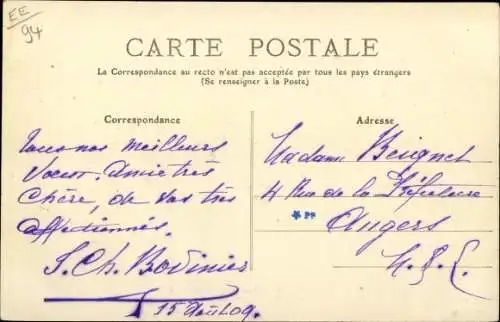 EE
94
CARTE POSTALE
La Correspondance au recto n'est pas acceptée par tous les pays étrangers
(Se renseigner à la Poste)
Correspondance
Tous nos meilleurs
Voeux. Amie très
Chère, de vos très
affectionnés.
S. Ch. Bodinier
15 Août 09.
Adresse
Madame Beignet
4 Rue de la Préfecture
Angers
M. & L.